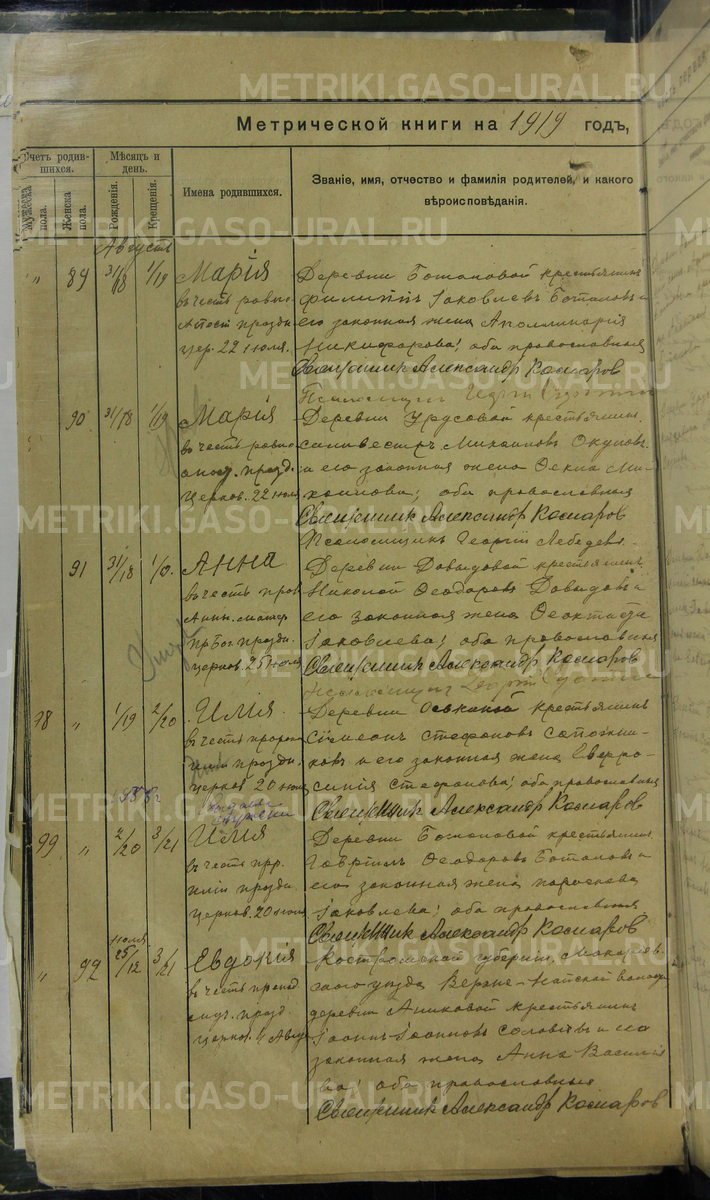 METRIKI.GASO-URAL.RU
Метрической книги на 1919 годъ,
Счетъ родив-
шихся.
Мѣсяцъ и
день.
Мужеска
пола.
Женска
пола.
Рожденія.
Крещенія.
Имена родившихся.
Званіе, имя, отчество и фамилія родителей, и какого
вѣроисповѣданія.
METRIKI.GASO-URAL.RU
Августъ
" 89 31/18 1/19 Марія
въ честь равно
Апост праздн
цер. 22 іюля.
Деревни Ботаповой крестьянинъ
Филиппъ Іаковлевъ и
его законная жена Аполлинарія
Никифорова; оба православныя
Священникъ Александр Комаров
METRIKI.GASO-URAL.RU
90 31/18 1/19 Марія
въ честь равно
апост. празд.
Церков. 22 іюля
Деревни Урусовой крестьянинъ
Михаиловъ Окуловъ
и его законная жена Ѳекла Ми-
хаилова; оба православныя
Священникъ Александр Комаров
METRIKI.GASO-URAL.RU
Псаломщикъ Георгій Лебедевъ
91 31/18 Анна
въ честь прав
Анны матер
пр Бог. праздн.
церков. 25 іюля
Деревни Давыдовой крестьянинъ
Николай Ѳеодоровъ Давыдовъ и
его законная жена Ѳеоктиста
Іаковлева; оба православныя
Священникъ Александр Комаров
METRIKI.GASO-URAL.RU
98 " 1/19 2/20 Илія
въ честь пророка
Иліи праздн.
церков 20 іюля
Деревни крестьянинъ
Симеонъ Стефановъ Сапожни-
ковъ и его законная жена Евфро-
синія Стефанова; оба православныя
Священникъ Александр Комаров
METRIKI.GASO-URAL.RU
99 " 2/20 3/21 Илія
въ честь прр.
Иліи праздн.
церков. 20 іюля
Деревни Ботаповой крестьянинъ
Гавріилъ Ѳеодоровъ и
его законная жена
Іаковлева; оба православныя
Священникъ Александр Комаров
METRIKI.GASO-URAL.RU
" 92 іюля 25/12 3/21 Евдокія
въ честь препод
муч. празд.
церков. 4 Авгус
Костромской губерніи, Макарьев-
скаго уѣзда волости
деревни Аниковой крестьянинъ
Іоаннъ Іоанновъ Соловьевъ и его
законная жена Анна Василіе
ва; оба православныя
Священникъ Александр Комаров
METRIKI.GASO-URAL.RU